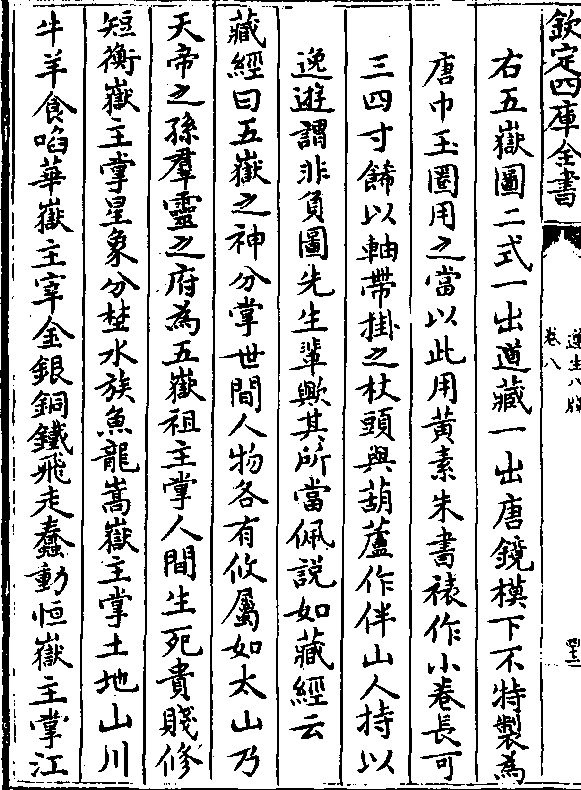 欽定四庫全書
卷八
右五嶽圖二式一出道藏一出唐鏡模下不特製為
唐巾玉圈用之當以此用黃素朱書裱作小卷長可
三四寸餙以軸帶掛之杖頭與葫蘆作伴山人持以
逸遊謂非負圖先生輩歟其所當佩説如藏經云
藏經曰五嶽之神分掌世間人物各有攸屬如太山乃
天帝之孫羣靈之府為五嶽祖主掌人間生死貴賤修
短衡嶽主掌星象分埜水族魚龍嵩嶽主掌土地山川
牛羊食啗華嶽主宰金銀銅鐵飛走蠢動恒嶽主掌江